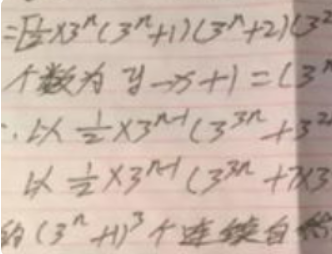 =[½×3ⁿ(3ⁿ+1)(3ⁿ+2)(3
个数为 y-x+1=(3ⁿ
∴以 ½×3ⁿ⁻¹(3³ⁿ+3²
以 ½×3ⁿ⁻¹(3³ⁿ+7×3
的(3ⁿ+1)³个连续自然